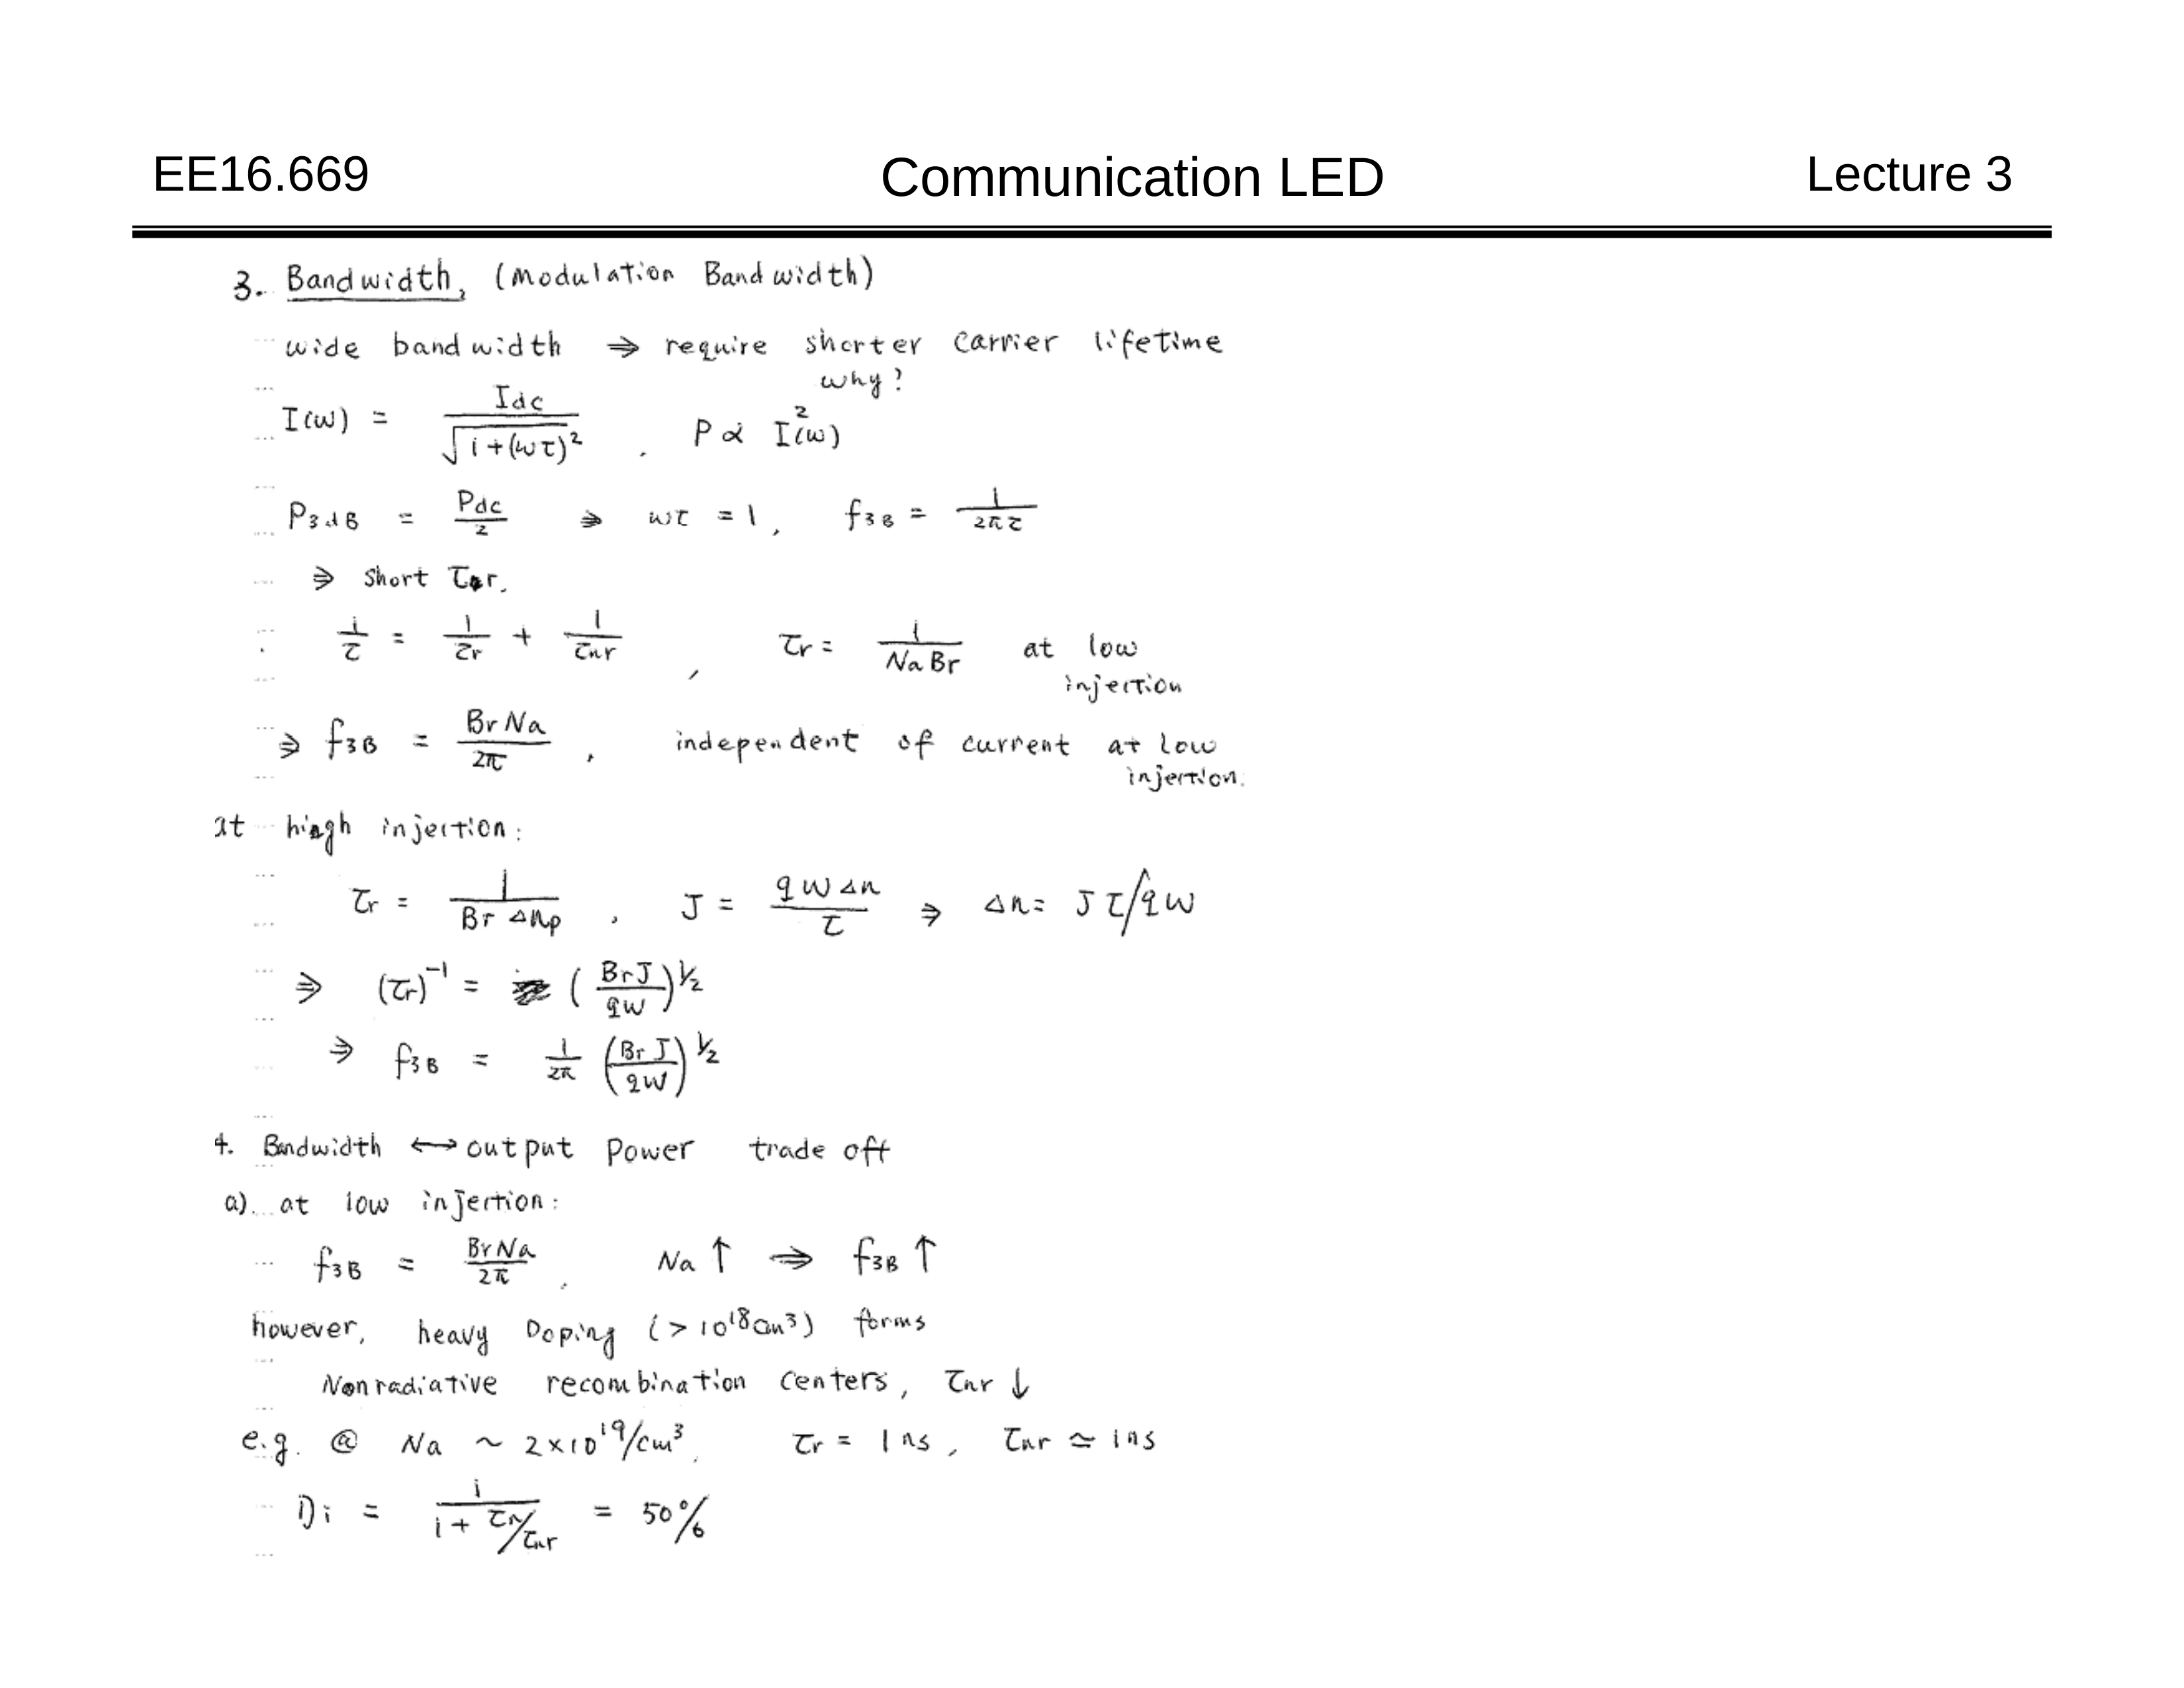 EE16.669 Communication LED Lecture 3
3. Bandwidth, (Modulation Bandwidth)
wide bandwidth ⇒ require shorter carrier lifetime
why?
I(ω) = Idc / √(1+(ωτ)²) . P ∝ I²(ω)
P3dB = Pdc/2 ⇒ ωτ = 1, f3B = 1/2πτ
⇒ short τr.
1/τ = 1/τr + 1/τnr , τr = 1/NaBr at low
injection
⇒ f3B = BrNa/2π , independent of current at low
injection.
at high injection:
τr = 1/BrΔnp , J = qWΔn/τ ⇒ Δn = Jτ/qW
⇒ (τr)⁻¹ = (BrJ/qW)^½
⇒ f3B = 1/2π (BrJ/qW)^½
4. Bandwidth ⟷ output Power trade off
a). at low injection:
f3B = BrNa/2π . Na ↑ ⇒ f3B ↑
however, heavy Doping (>10¹⁸cm³) forms
Nonradiative recombination centers, τnr ↓
e.g. @ Na ~ 2×10¹⁹/cm³, τr = 1ns, τnr ≃ 1ns
ηi = 1/(1+τr/τnr) = 50%